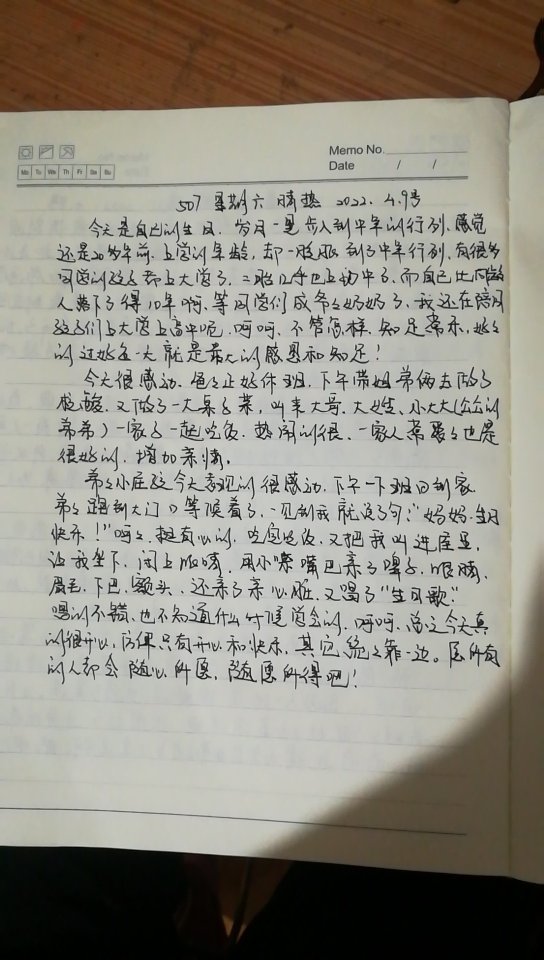 Memo No.
Mo Tu We Th Fr Sa Su
Date / /
507 星期六 晴热 2022. 4.9号
今天是自己的生日、岁月一是步入到中年的行列、感觉
还是20多年前、上学的年龄,却一眨眼到了中年行列,有很多
同学的孩子都上大学了,二胎几乎也上初中了,而自己比同龄
人落下了得10年啊、等同学们成爷爷奶奶了、我还在陪同
孩子们上大学上高中呢、呵呵、不管怎样、知足常乐,好好
的过好每一天就是最大的感恩和知足!
今天很感动、爸爸正好休班,下午带姐弟俩去做了
核酸、又做了一大桌子菜,叫来大哥、大姓、小大大(公公的
弟弟)一家子一起吃饭、热闹的很、一家人常聚聚也是
很好的、增加亲情。
弟弟小屁孩今天表现的很感动、下午一下班回到家
弟弟跑到大门口等候着了,一见到我就说了句:"妈妈、生日
快乐!"呵呵、挺有心的,吃完饭后、又把我叫进屋里,
让我坐下、闭上眼睛、用小嘴嘴巴亲了鼻子、眼睛、
眉毛、下巴、额头、还亲了亲心脏,又唱了"生日歌",
唱的不错、也不知道什么时候学会的、呵呵、总之今天真
的很开心,仿佛只有开心和快乐,其它统统靠一边。愿所有
的人都会随心所愿,随愿所得吧!